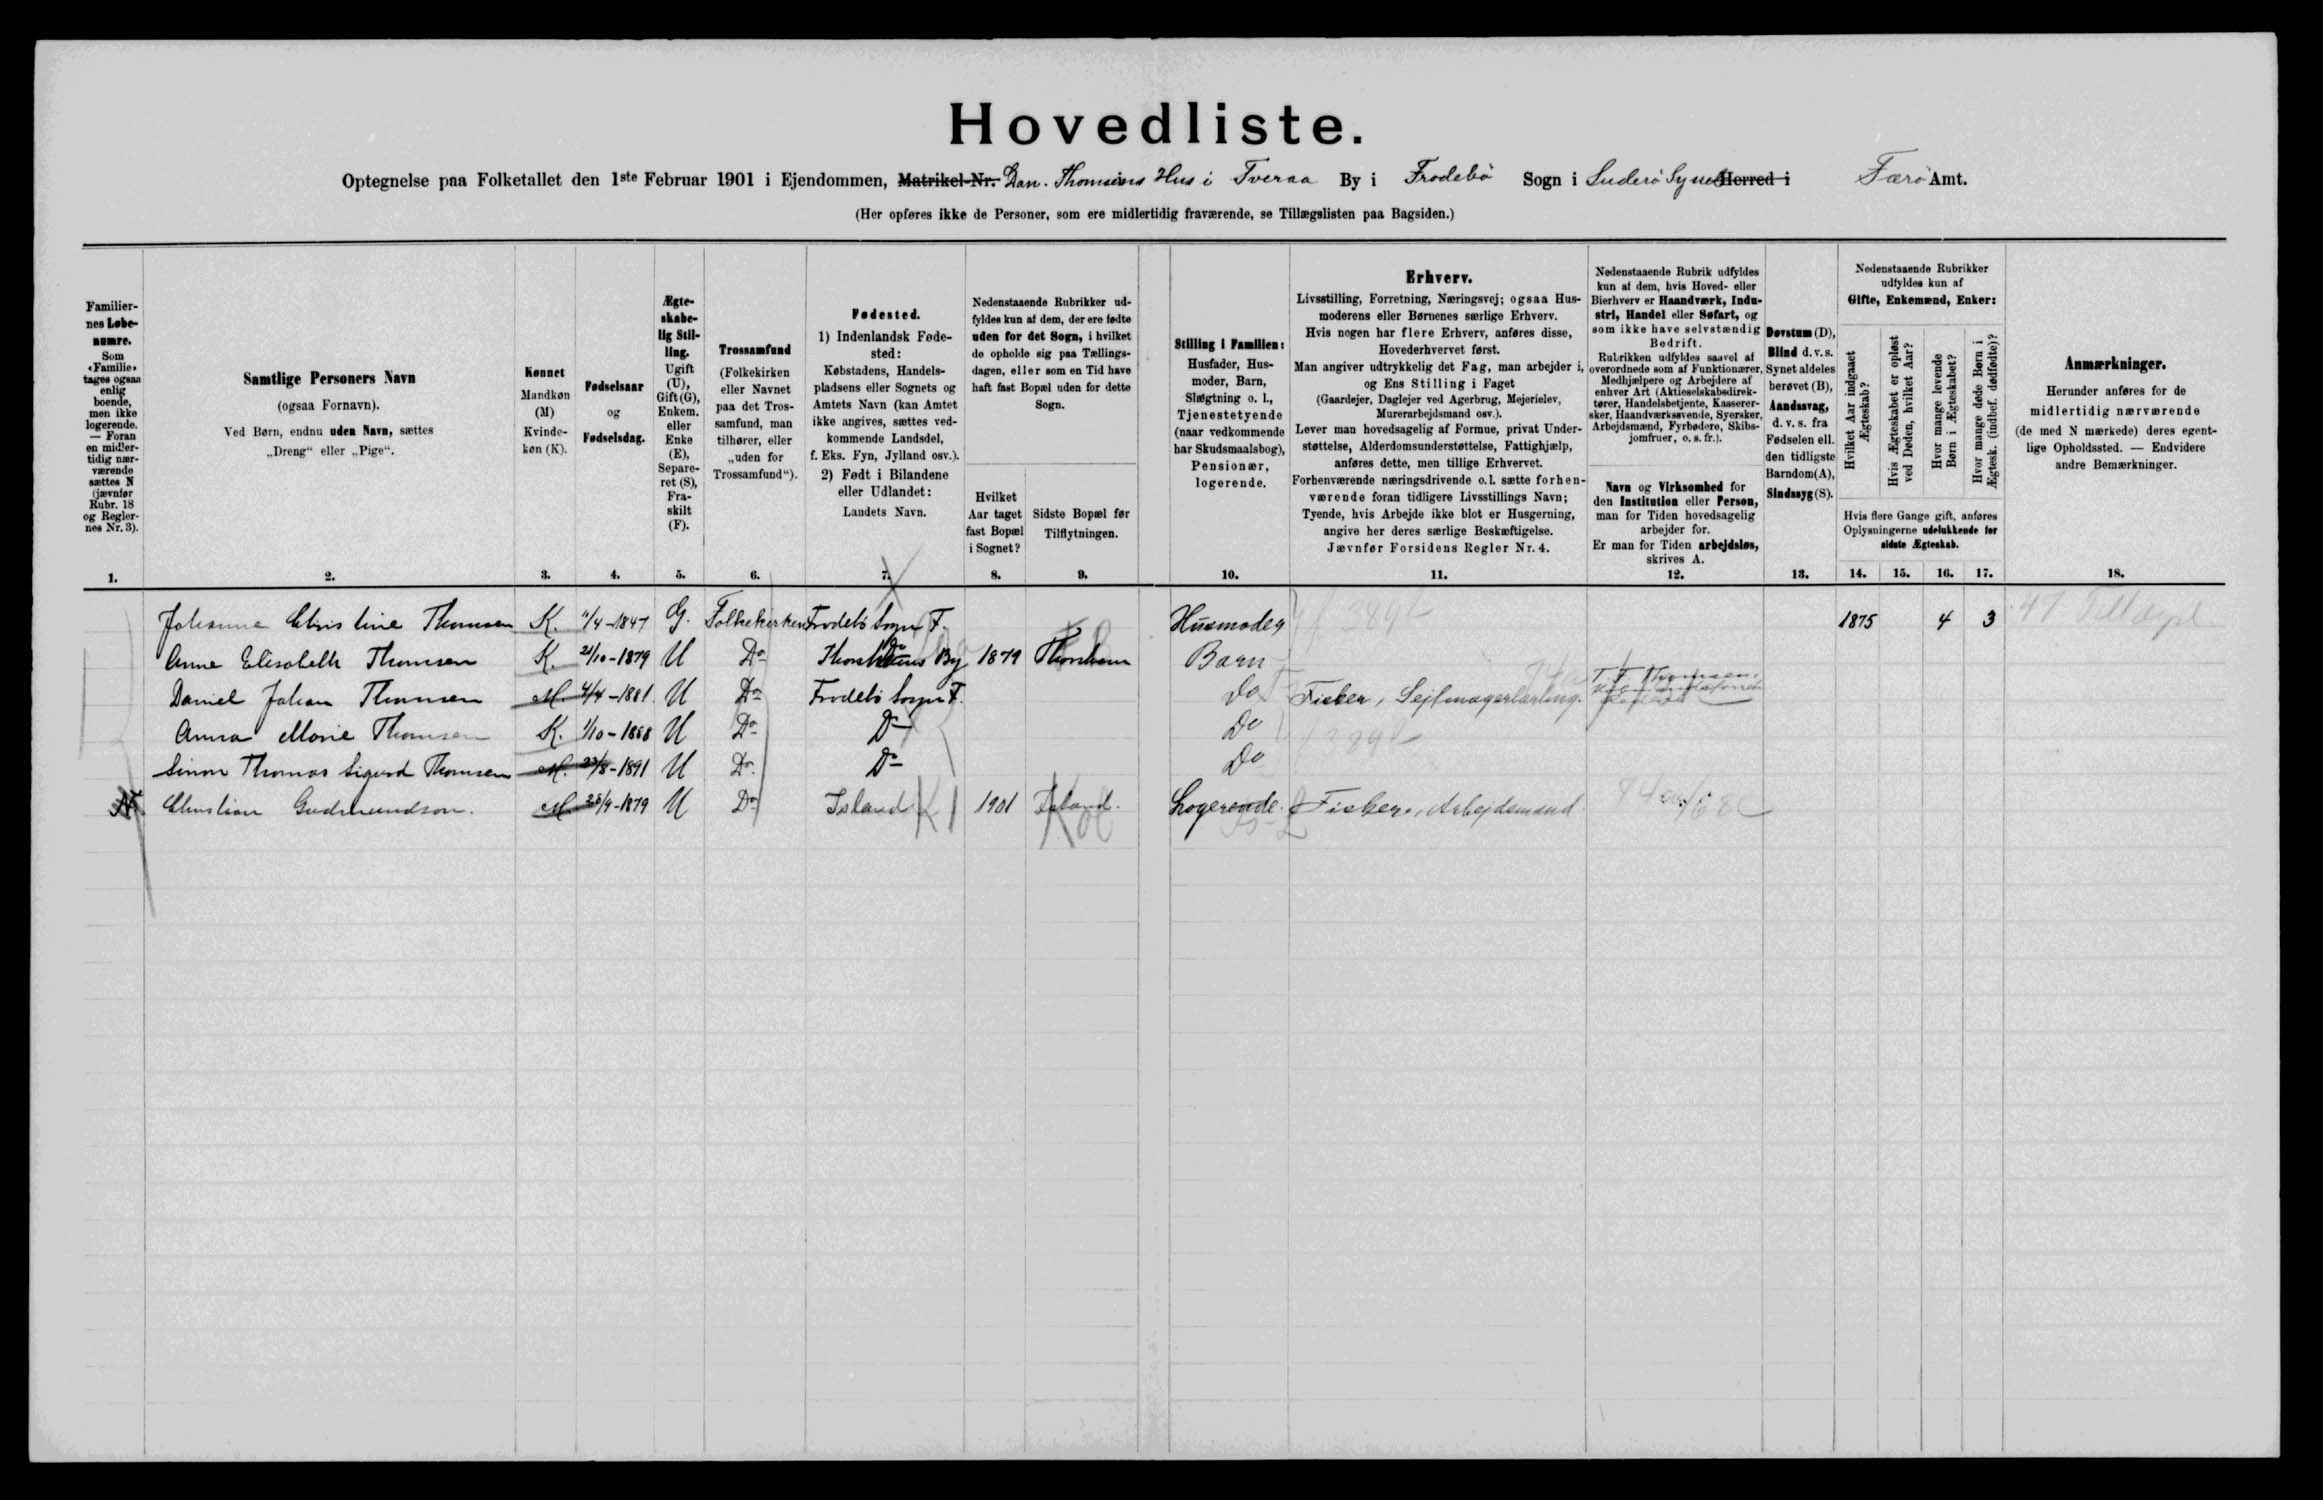 Hovedliste.
Optegnelse paa Folketallet den 1ste Februar 1901 i Ejendommen, Matrikel-Nr. Dan. Thomsens Hus i Tveraa By i Frodebø Sogn i Suderø Syssel Herred i Færø Amt.
(Her opføres ikke de Personer, som ere midlertidig fraværende, se Tillægslisten paa Bagsiden.)
Familiernes Løbenumre.
Som «Familie» tages ogsaa enlig boende, men ikke logerende. — Foran en midlertidig nærværende sættes N (jævnfør Rubr. 18 og Reglernes Nr. 3).
1.
Samtlige Personers Navn
(ogsaa Fornavn).
Ved Børn, endnu uden Navn, sættes
„Dreng“ eller „Pige“.
2.
Kønnet
Mandkøn
(M)
Kvinde-
køn (K).
3.
Fødselsaar
og
Fødselsdag.
4.
Ægte-
skabe-
lig Stil-
ling.
Ugift
(U),
Gift (G),
Enkem.
eller
Enke
(E),
Separe-
ret (S),
Fra-
skilt
(F).
5.
Trossamfund
(Folkekirken
eller Navnet
paa det Tros-
samfund, man
tilhører, eller
„uden for
Trossamfund“).
6.
Fødested.
1) Indenlandsk Føde-
sted:
Købstadens, Handels-
pladsens eller Sognets og
Amtets Navn (kan Amtet
ikke angives, sættes ved-
kommende Landsdel,
f. Eks. Fyn, Jylland osv.).
2) Født i Bilandene
eller Udlandet:
Landets Navn.
7.
Nedenstaaende Rubrikker ud-
fyldes kun af dem, der ere fødte
uden for det Sogn, i hvilket
de opholde sig paa Tællings-
dagen, eller som en Tid have
haft fast Bopæl uden for dette
Sogn.
Hvilket
Aar taget
fast Bopæl
i Sognet?
8.
Sidste Bopæl før
Tilflytningen.
9.
Stilling i Familien:
Husfader, Hus-
moder, Barn,
Slægtning o. l.,
Tjenestetyende
(naar vedkommende
har Skudsmaalsbog),
Pensionær,
logerende.
10.
Erhverv.
Livsstilling, Forretning, Næringsvej; ogsaa Hus-
moderens eller Børnenes særlige Erhverv.
Hvis nogen har flere Erhverv, anføres disse,
Hovederhvervet først.
Man angiver udtrykkelig det Fag, man arbejder i,
og Ens Stilling i Faget
(Gaardejer, Daglejer ved Agerbrug, Mejerielev,
Murerarbejdsmand osv.).
Lever man hovedsagelig af Formue, privat Under-
støttelse, Alderdomsunderstøttelse, Fattighjælp,
anføres dette, men tillige Erhvervet.
Forhenværende næringsdrivende o. l. sætte forhen-
værende foran tidligere Livsstillings Navn;
Tyende, hvis Arbejde ikke blot er Husgerning,
angive her deres særlige Beskæftigelse.
Jævnfør Forsidens Regler Nr. 4.
11.
Nedenstaaende Rubrik udfyldes
kun af dem, hvis Hoved- eller
Bierhverv er Haandværk, Indu-
stri, Handel eller Søfart, og
som ikke have selvstændig
Bedrift.
Rubrikken udfyldes saavel af
overordnede som af Funktionærer,
Medhjælpere og Arbejdere af
enhver Art (Aktieselskabsdirek-
tører, Handelsbetjente, Kasserer-
sker, Haandværkssvende, Syersker,
Arbejdsmænd, Fyrbødere, Skibs-
jomfruer, o. s. fr.).
Navn og Virksomhed for
den Institution eller Person,
man for Tiden hovedsagelig
arbejder for.
Er man for Tiden arbejdsløs,
skrives A.
12.
Døvstum (D),
Blind d. v. s.
Synet aldeles
berøvet (B),
Aandssvag,
d. v. s. fra
Fødselen ell.
den tidligste
Barndom (A),
Sindssyg (S).
13.
Nedenstaaende Rubrikker
udfyldes kun af
Gifte, Enkemænd, Enker:
Hvilket Aar indgaaet Ægteskab?
Hvis Ægteskabet er opløst ved Døden, hvilket Aar?
Hvor mange levende Børn i Ægteskabet?
Hvor mange døde Børn i Ægtesk. (indbef. dødfødte)?
Hvis flere Gange gift, anføres
Oplysningerne udelukkende for
sidste Ægteskab.
14. 15. 16. 17.
Anmærkninger.
Herunder anføres for de
midlertidig nærværende
(de med N mærkede) deres egent-
lige Opholdssted. — Endvidere
andre Bemærkninger.
18.
Johanne Christine Thomsen K. 11/4-1847 G. Folkekirken Frodebø Sogn F. Husmoder 1875 4 3
Anne Elisabeth Thomsen K. 21/10-1879 U Do Thorshavns By 1879 Thorshavn Barn
Daniel Johan Thomsen M. 4/4-1881. U Do Frodebø Sogn F. Do Fisker, Sejlmagerlærling. T. F. Thomsen,
Anna Marie Thomsen K. 1/10-1888 U Do Do Do
Simon Thomas Sigurd Thomsen M. 23/8-1891 U Do. Do Do
N Christian Gudmundson. M. 25/9-1879 U Do Island 1901 Island. Logerende. Fisker, Arbejdsmand.